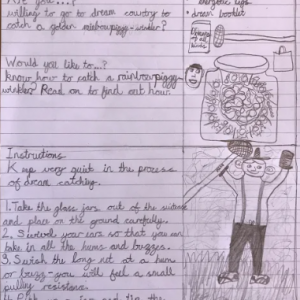 Are you...?
willing to go to dream country to
catch a golden rainbowpiggy-winkle?
energetic legs
dream booklet
Would you like to...?
know how to catch a rainbowpiggy-
winkle? Read on to find out how.
Instructions
Keep very quiet in the process
of dream catching.
1. Take the glass jars out of the suitcase
and place on the ground carefully.
2. Swivel your ears so that you can
take in all the hums and buzzes.
3. Swish the long net at a hum
or buzz-you will feel a small
pulling resistance.